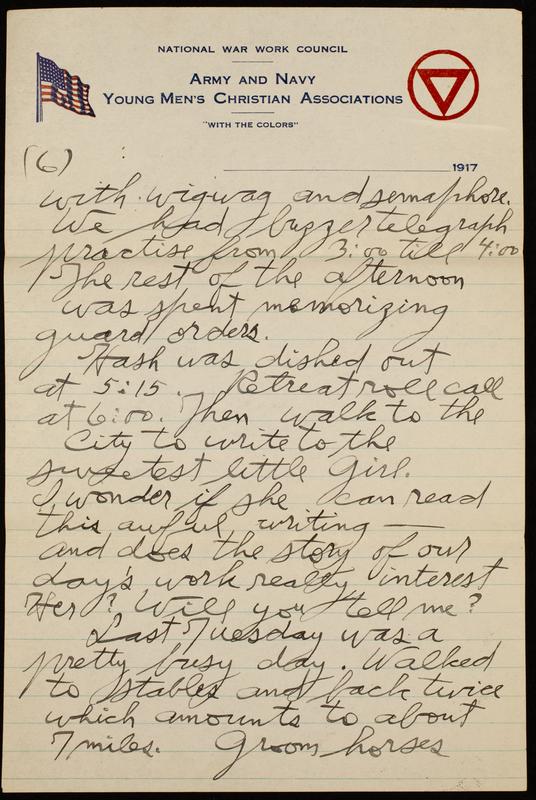 NATIONAL WAR WORK COUNCIL
ARMY AND NAVY
YOUNG MEN'S CHRISTIAN ASSOCIATIONS
"WITH THE COLORS"
(6)
1917
with wigwag and semaphore.
We had buzzer telegraph
practise from 3:00 till 4:00
The rest of the afternoon
was spent memorizing
guard orders.
Hash was dished out
at 5:15. Retreat roll call
at 6:00. Then walk to the
City to write to the
sweetest little Girl.
I wonder if she can read
this awful writing —
and does the story of our
day's work really interest
Her? Will you tell me?
Last Tuesday was a
pretty busy day. Walked
to stables and back twice
which amounts to about
7 miles. Groom horses